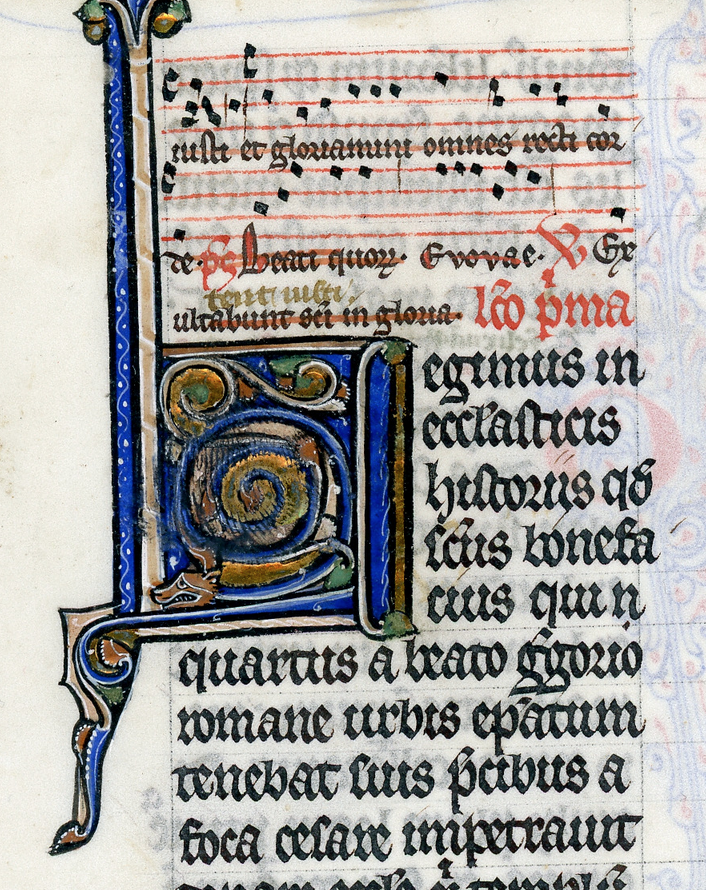 iusti et gloriamini omnes recti cor
de. ps Beati quorꝝ. Evovae. ℣ Ex
tent iusti.
ultabunt sc̄i in gloria. lc̄o p̄ma
Legimus in
eccl̄asticis
historiis qd̄
sc̄us bonefa
cius qui n
quartus a beato ḡgorio
romane urbis ep̄atum
tenebat suis p̄cibus a
foca cesare impetrauit